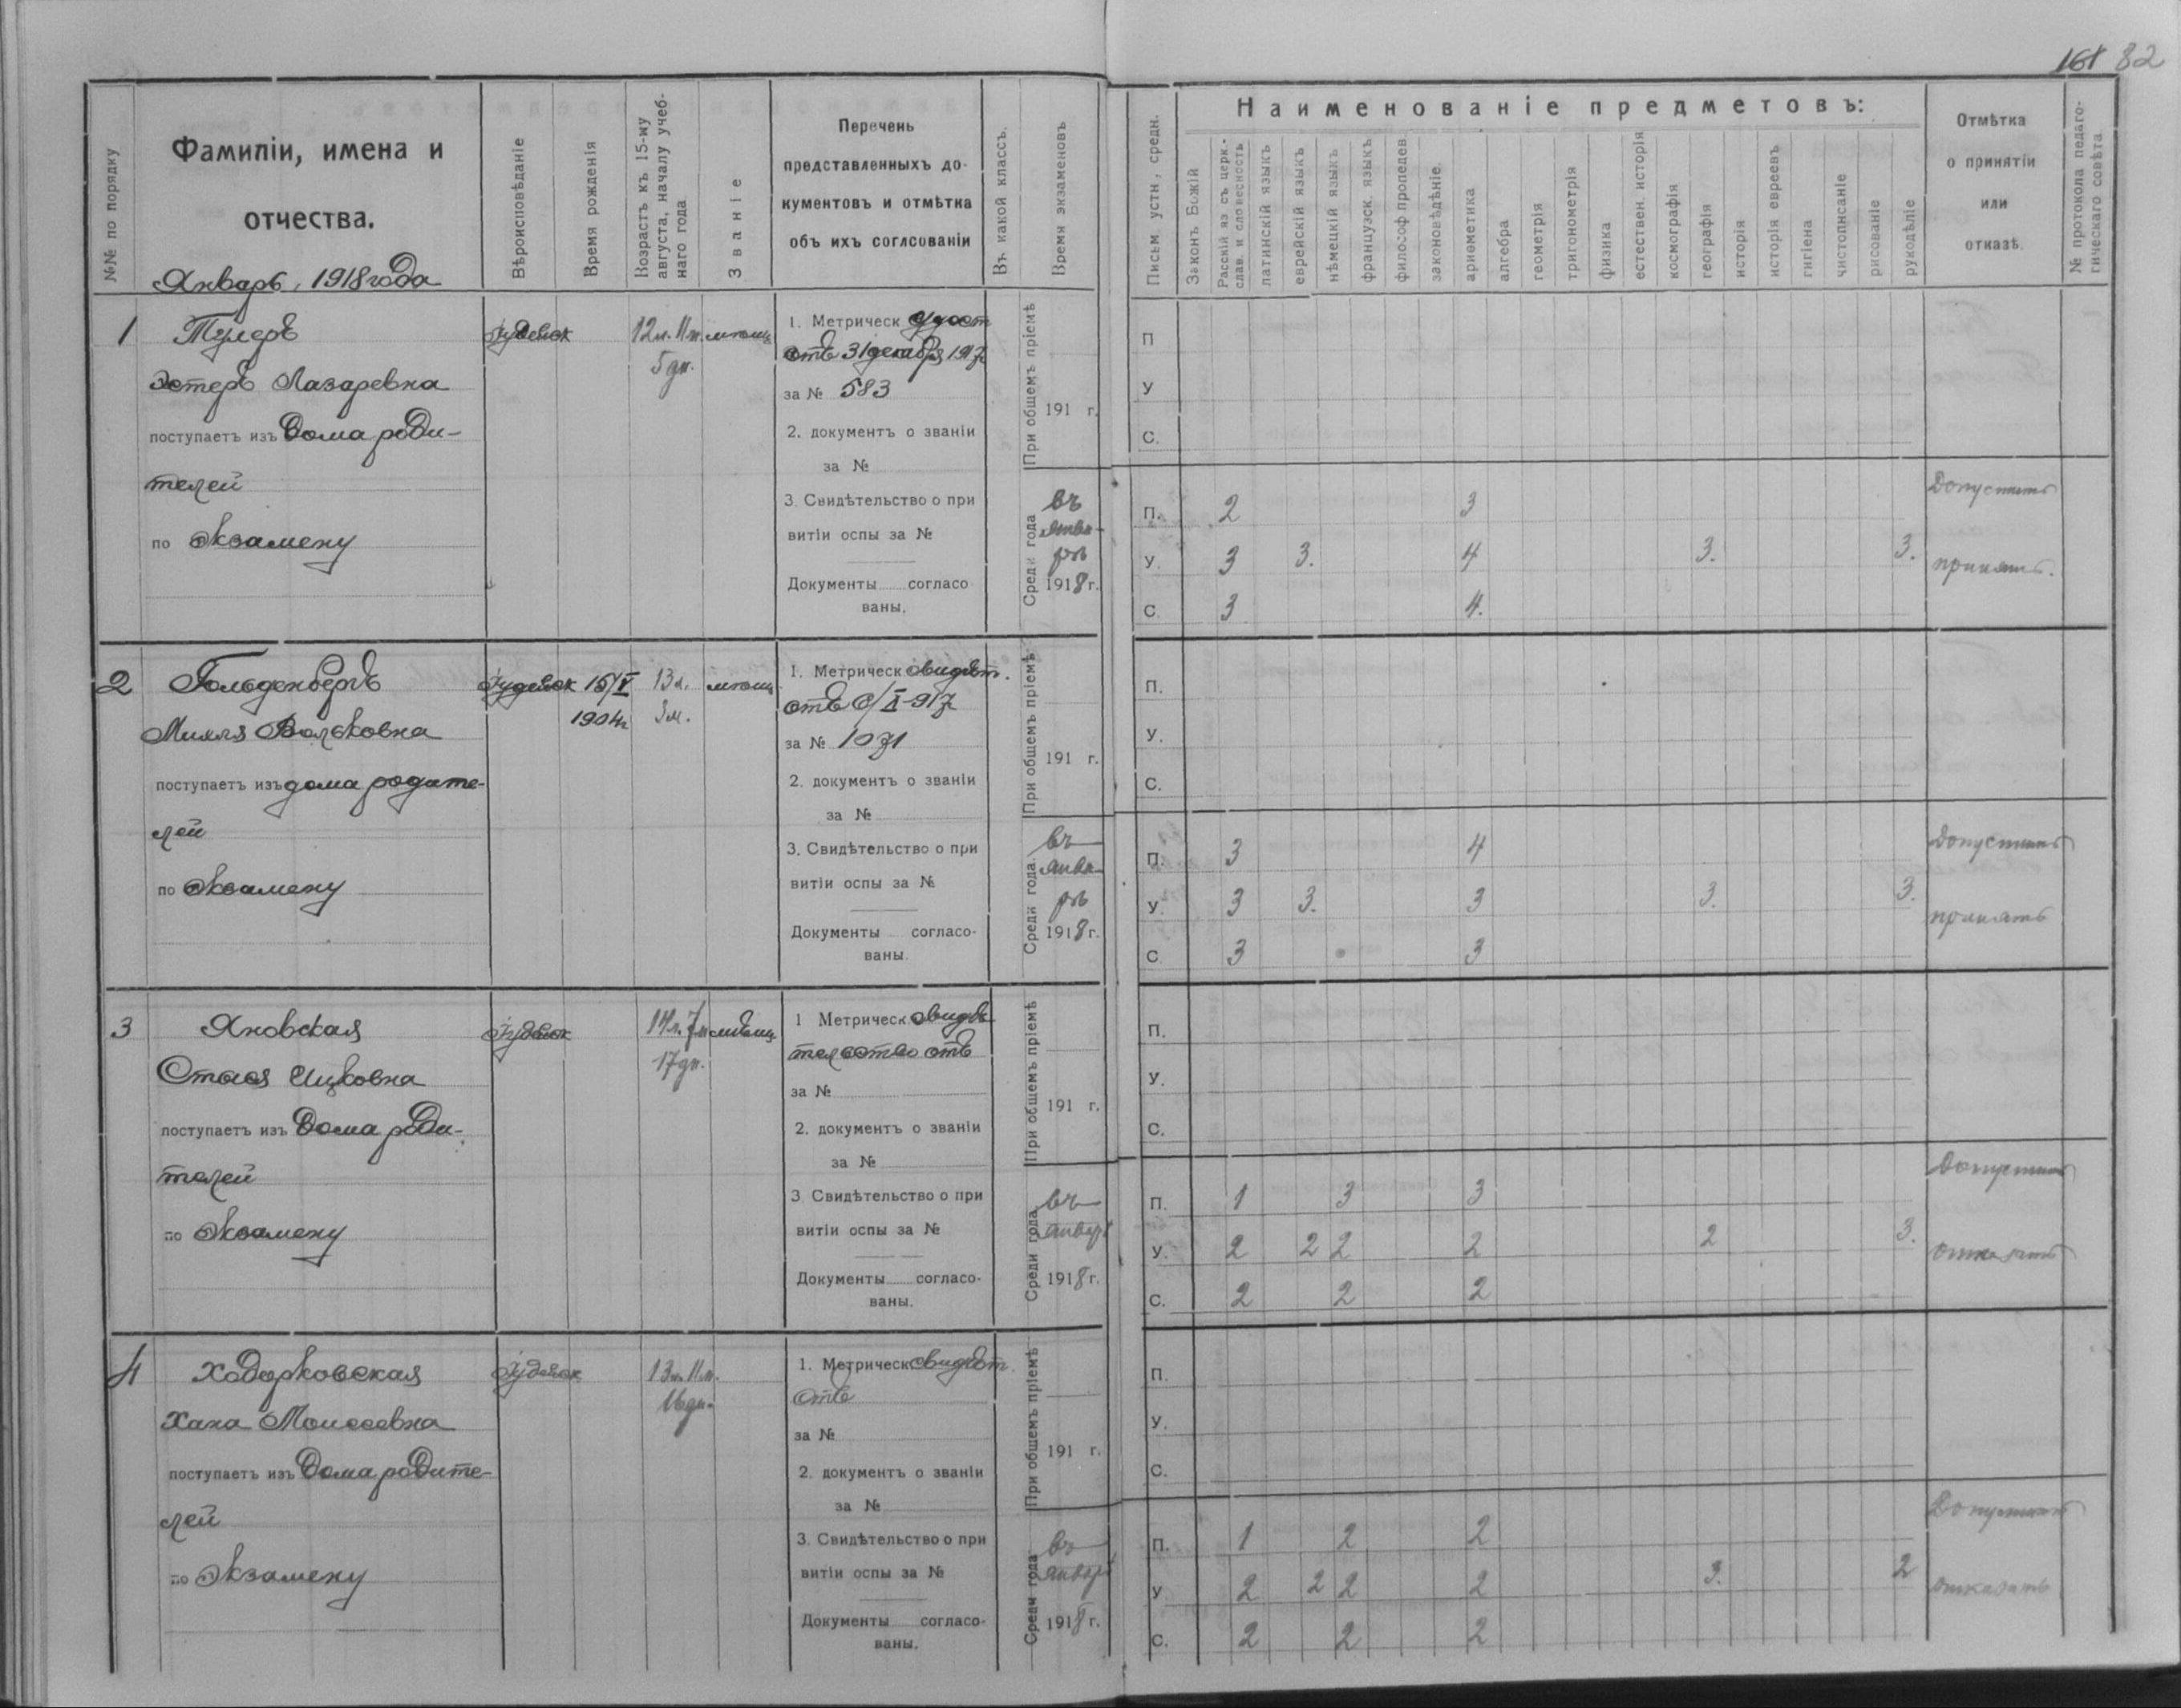 161 82
№№ по порядку
Фамиліи, имена и
отчества.
Январь, 1918 года
Вѣроисповѣданіе
Время рожденія
Возрастъ къ 15-му
августа, началу учеб-
наго года
Званіе
Перечень
представленныхъ до-
кументовъ и отмѣтка
объ ихъ согласованіи
Въ какой классъ.
Время экзаменовъ
Письм устн., средн.
Наименованіе предметовъ:
Законъ Божій
Русскій яз съ церк.-
слав. и словесность
латинскій языкъ
еврейскій языкъ
нѣмецкій языкъ
француэск. языкъ
философ пропедев.
законовѣдѣніе.
ариөметика
алгебра
геометрія
тригонометрія
физика
естествен. исторія
космографія
географія
исторія
исторія евреевъ
гигіена
чистописаніе
рисованіе
рукодѣліе
Отмѣтка
о принятіи
или
отказѣ.
№ протокола педаго-
гическаго совѣта
1
Эстеръ Лазаревна
поступаетъ изъ дома роди-
телей
по экзамену
Іудейск
12 л. 11 м.
5 дн.
мѣщ
1. Метрическ удост
отъ 31 декабря 1917
за № 583
2. документъ о званіи
за №
3. Свидѣтельство о при
витіи оспы за №
Документы согласо
ваны.
При общемъ пріемѣ
191 г.
Среди года
въ
янва-
рѣ
1918 г.
П
У
С.
П. 2 3
У. 3 3. 4 3. 3.
С. 3 4.
Допустить
принять.
2
Гольденбергъ
Миля Вольковна
поступаетъ изъ дома родите-
лей
по экзамену
Іудейск
15/V
1904 г
13 л.
3 м.
мѣщ
1. Метрическ свидѣт.
за № 1071
2. документъ о званіи
за №
3. Свидѣтельство о при
витіи оспы за №
Документы согласо-
ваны.
При общемъ пріемѣ
191 г.
Среди года.
въ
янва-
рѣ
1918 г.
П.
У.
С.
П. 3 4
У. 3 3. 3 3. 3.
С 3 3
Допустить
принять
3
Яновская
Стася Ицковна
поступаетъ изъ дома роди-
телей
по экзамену
Іудейск
14 л. 7 м
17 дн.
мѣщ
1 Метрическ свидѣ
тельство отъ
за №
2. документъ о званіи
за №
3 Свидѣтельство о при
витіи оспы за №
Документы согласо-
ваны.
При общемъ пріемѣ
191 г.
Среди года
въ
январѣ
1918 г.
П.
У.
С.
П. 1 3 3
У. 2 2 2 2 2 3.
С. 2 2 2
Допустить
отказать
4
Ходорковская
Хана Моисеевна
поступаетъ изъ дома родите-
лей
по экзамену
Іудейск
13 л. 11 м.
16 дн.
1. Метрическ свидѣт.
отъ
за №
2. документъ о званіи
за №
3. Свидѣтельство о при
витіи оспы за №
Документы согласо-
ваны.
При общемъ пріемѣ
191 г.
Среди года
въ
январѣ
1918 г.
П.
У.
С.
П. 1 2 2
У 2 2 2 2 3. 2
С. 2 2 2
Допустить
отказать